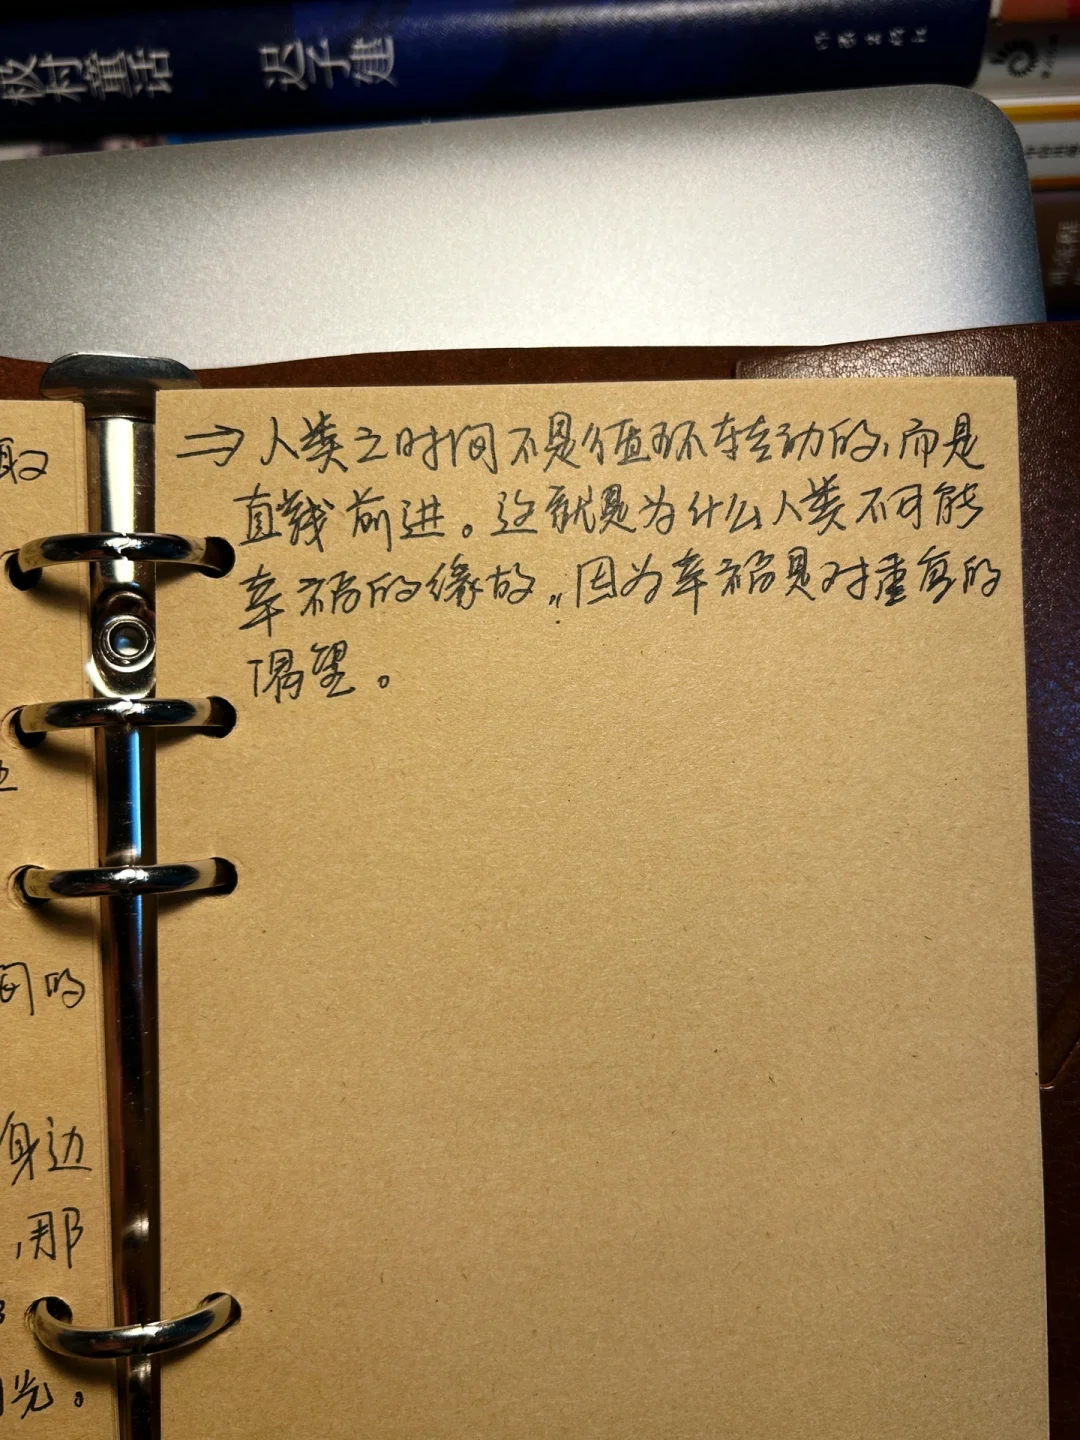 极村童话 迟子建 作家出版社
⇒人类之时间不是循环转动的,而是
直线前进。这就是为什么人类不可能
幸福的缘故,,因为幸福是对重复的
渴望。
取
间的
身边
,那
光。